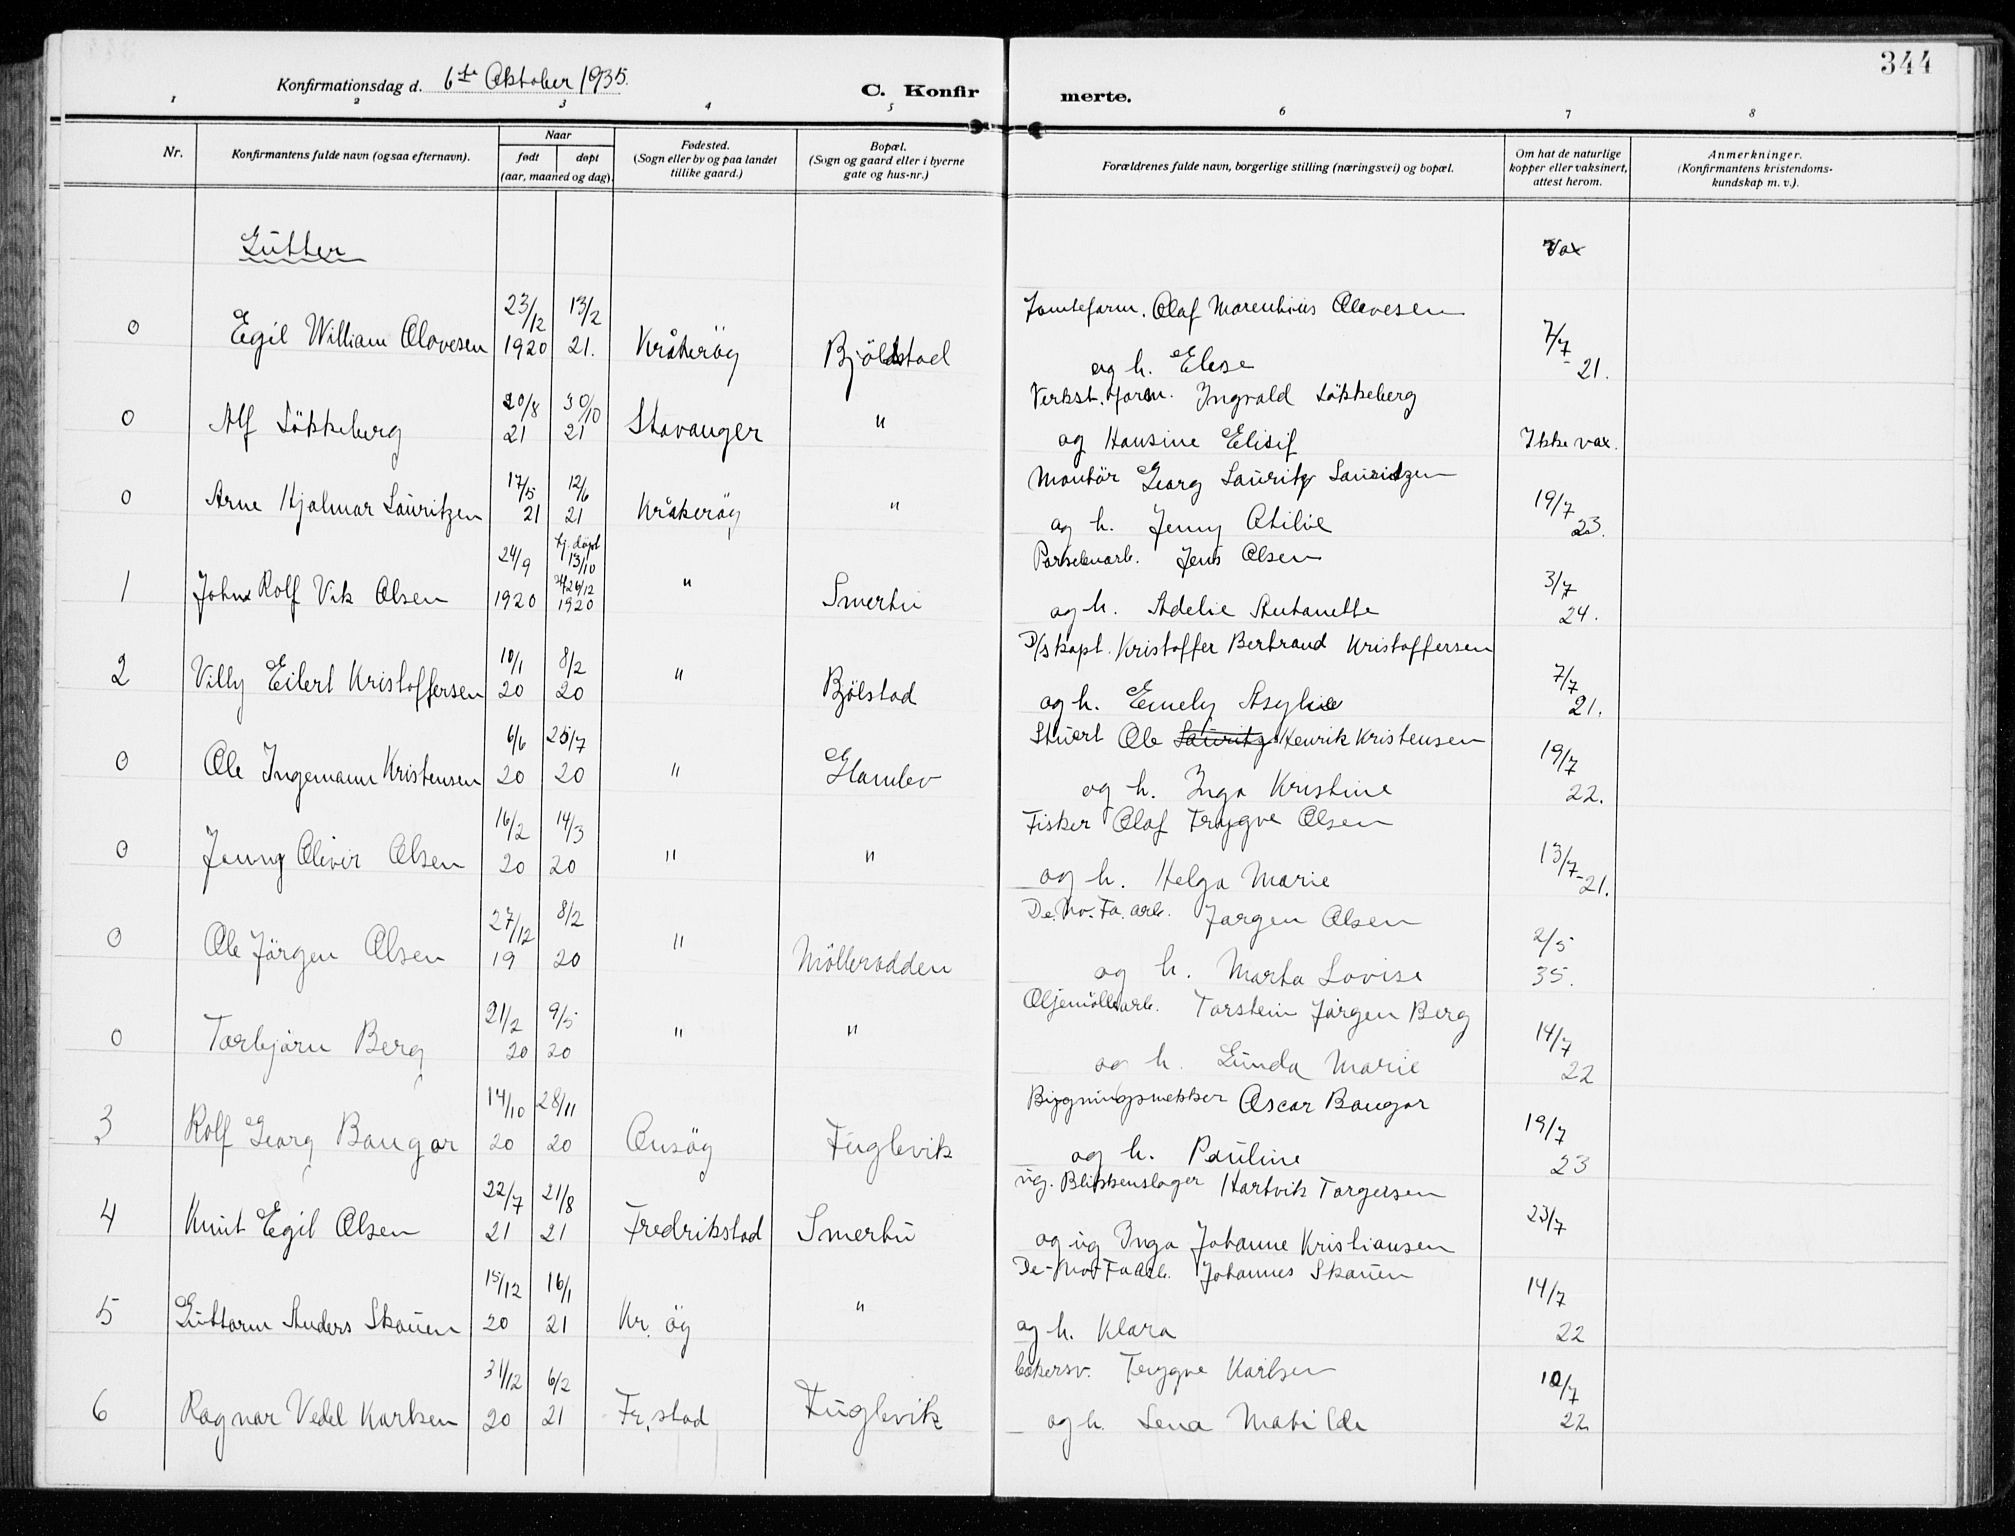 344
Konfirmationsdag d. 6te Oktober 1935.
C. Konfirmerte.
1 2 3 4 5 6 7 8
Nr.
Konfirmantens fulde navn (ogsaa efternavn).
Naar
født
døpt
(aar, maaned og dag).
Fødested.
(Sogn eller by og paa landet
tillike gaard.)
Bopæl.
(Sogn og gaard eller i byerne
gate og hus-nr.)
Forældrenes fulde navn, borgerlige stilling (næringsvei) og bopæl.
Om hat de naturlige
kopper eller vaksinert,
attest herom.
Anmerkninger.
(Konfirmantens kristendoms-
kundskap m. v.).
Gutter
Vax
0 Egil William Olavesen 23/12 1920 13/2 21. Kråkerøy Bjölstad
Tomteform. Olaf Marenhius Olavesen
og h. Elise 7/7-21.
0 Alf Lökkeberg 20/8 21 30/10 21 Stavanger "
Verkst. form. Ingvald Lökkeberg
og Hansine Elisif Ikke vax.
0 Arne Hjalmar Lauritzen 17/5 21 12/6 21 Kråkerøy "
Montör Georg Lauritz Lauritzen
og h. Jenny Otilie 19/7 23.
1 John Rolf Vik Olsen 24/9 1920 hj. döpt 13/10 26/12 1920 " Smertu
Jens Olsen
og h. Adelie Antonette 3/7 24.
2 Villy Eilert Kristoffersen 10/1 20 8/2 20 " Bjölstad
D/skapt. Kristoffer Bertrand Kristoffersen
og h. Emely Asylie 7/7 21.
0 Ole Ingemann Kristensen 6/6 20 25/7 20 " Glombo
Stuert Ole Lauritz Henrik Kristensen
og h. Inga Kristine 19/7 22.
0 Jenny Oliver Olsen 16/2 20 14/3 20 " "
Fisker Olaf Trygve Olsen
og h. Helga Marie 13/7-21.
0 Ole Jörgen Olsen 27/12 19 8/2 20 " Möllerodden
De. No. Fa. arb. Jörgen Olsen
og h. Marta Lovise 2/5 35.
0 Torbjörn Berg 21/2 20 9/5 20 " "
Oljemöllearb. Torstein Jörgen Berg
og h. Gunda Marie 14/7 22
3 Rolf Georg Bangor 14/10 20 28/11 20 Onsöy Fuglevik
Bygningssnekker Oscar Bangor
og h. Pauline 19/7 23
4 Knut Egil Olsen 22/7 21 21/8 21 Fredrikstad Smertu
ug. Blikkenslager Hartvik Torgersen
og ug Inga Johanne Kristiansen 23/7
5 Guttorm Anders Skauen 15/12 20 16/1 21 Kr. öy "
De-No-Fa arb. Johannes Skauen
og h. Klara 14/7 22
6 Ragnar Vedel Karlsen 31/12 20 6/2 21 Fr. stad Fuglevik
bakersv. Trygve Karlsen
og h. Lena Matilde 10/7 22